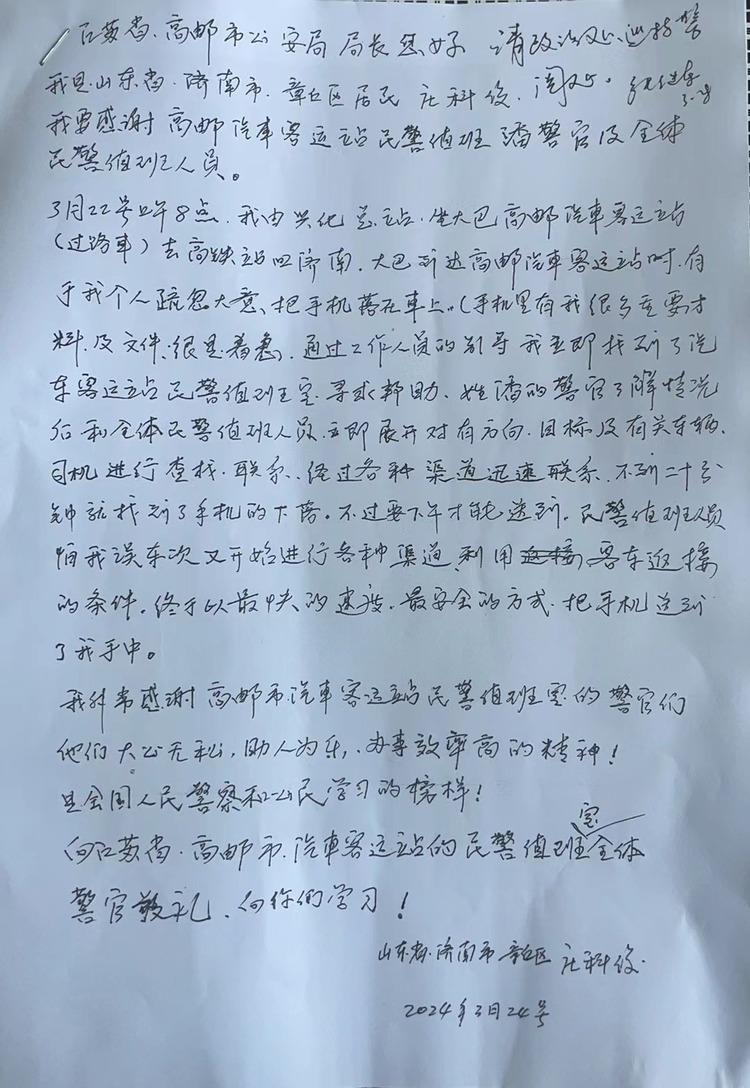 江苏省.高邮市公安局 局长您好 请政治处、巡特警
我是.山东省.济南市.章丘区居民 庄科俊. 阅处.
3.28
我要感谢 高邮汽車客运站民警值班 潘警官及全体
民警值班人员。
3月22号上午8点.我由兴化总站.坐大巴高邮汽車客运站
(过路車)去高铁站回济南.大巴到达高邮汽車客运站时.有
于我个人疏忽大意、把手机落在車上..(手机里有我很多重要才
料.及文件.很是着急).通过工作人员的引导我立即找到了汽
车客运站民警值班室.寻求帮助.姓潘的警官了解情况
后和全体民警值班人员.立即展开对有方向.目标及有关车辆.
司机进行查找.联系.经过各种渠道迅速联系.不到二十分
钟就找到了手机的下落。不过要下午才能送到。民警值班人员
怕我误车次又开始进行各种渠道、利用 客车返接
的条件。终于以最快的速度.最安全的方式.把手机送到
了我手中。
我非常感谢高邮市汽車客运站民警值班室的警官们
他们大公无私,助人为乐,办事效率高的精神!
是全国人民警察和公民学习的榜样!
向江苏省.高邮市.汽車客运站的民警值班室全体
警官敬礼.向你们学习!
山东省.济南市章丘区 庄科俊.
2024年3月24号